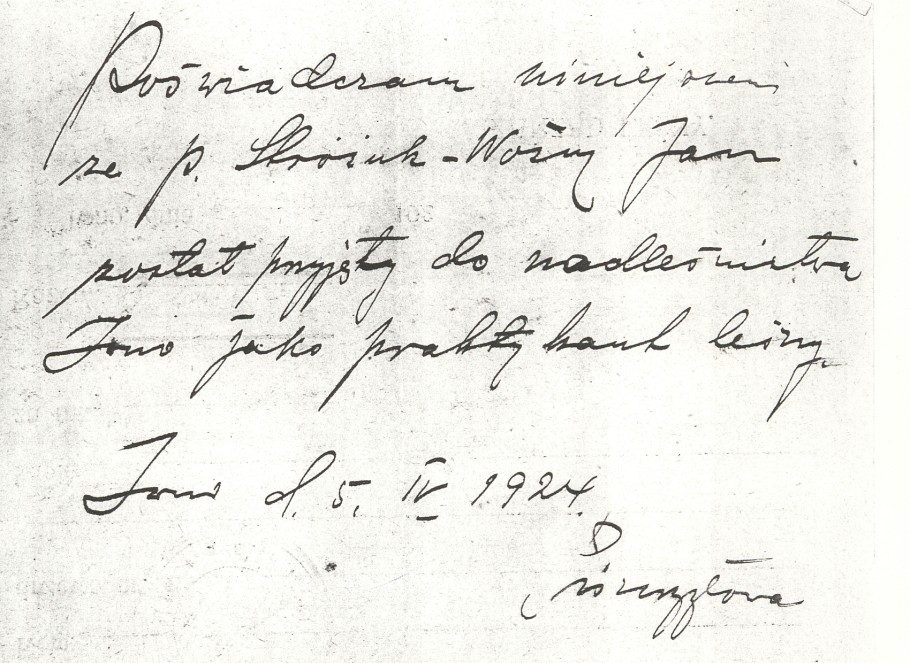 Poświadczam niniejszem
że p. Stróżuk-Woźny Jan
został przyjęty do nadleśnictwa
jako praktykant leśny.
d. 5. IV 1924.